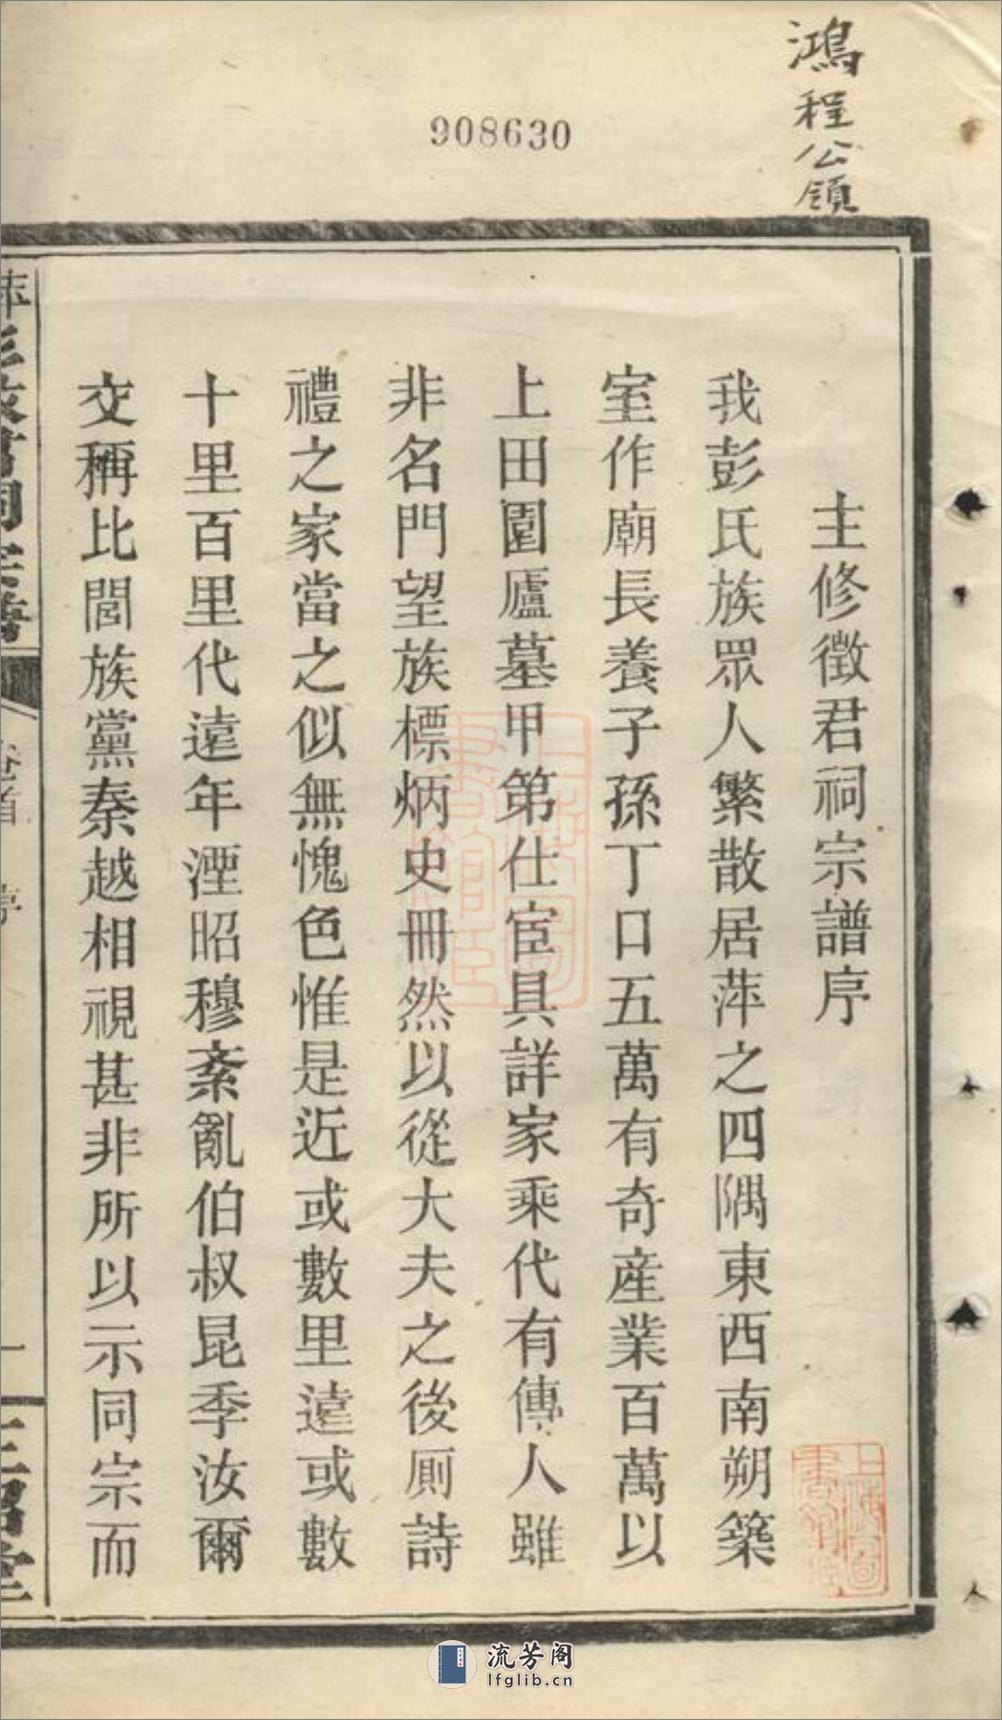 鴻程公領
908630
主修徵君祠宗譜序
我彭氏族眾人繁散居萍之四隅東西南朔築
室作廟長養子孫丁口五萬有奇産業百萬以
上田園廬墓甲第仕宦具詳家乘代有傳人雖
非名門望族標炳史冊然以從大夫之後厠詩
禮之家當之似無愧色惟是近或數里遠或數
十里百里代遠年湮昭穆紊亂伯叔昆季汝爾
交稱比閭族黨秦越相視甚非所以示同宗而
卷首 序 一
上海圖書館藏
流芳阁
lfglib.cn